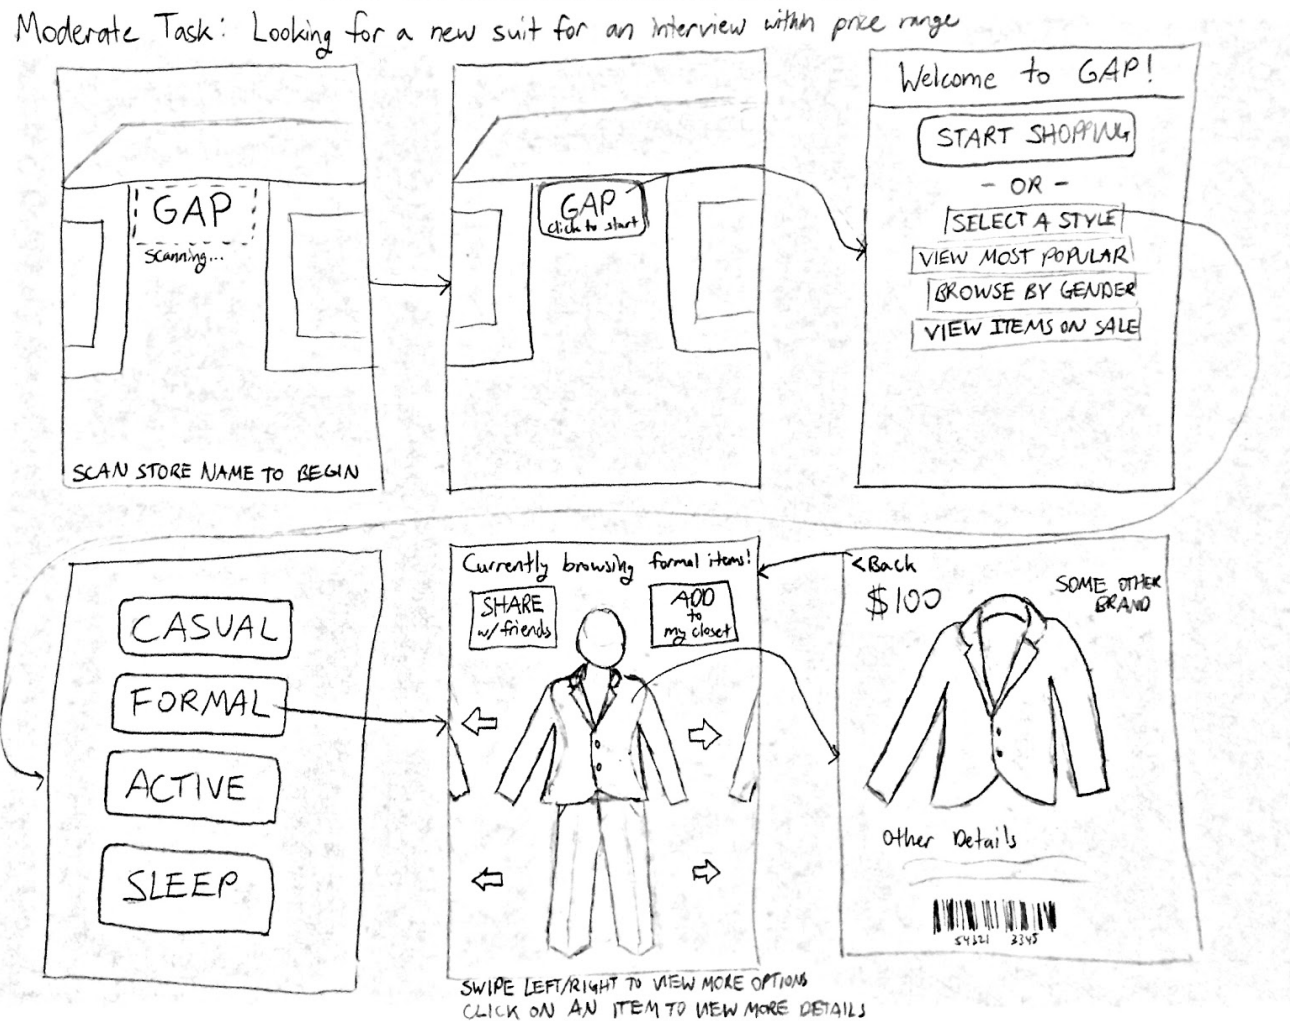 Moderate Task: Looking for a new suit for an interview within price range
GAP
Scanning...
SCAN STORE NAME TO BEGIN
GAP
click to start
Welcome to GAP!
START SHOPPING
- OR -
SELECT A STYLE
VIEW MOST POPULAR
BROWSE BY GENDER
VIEW ITEMS ON SALE
CASUAL
FORMAL
ACTIVE
SLEEP
Currently browsing formal items!
SHARE
w/ friends
ADD
to
my closet
SWIPE LEFT/RIGHT TO VIEW MORE OPTIONS
CLICK ON AN ITEM TO VIEW MORE DETAILS
<Back
$100
SOME OTHER
BRAND
Other Details
54321 3345